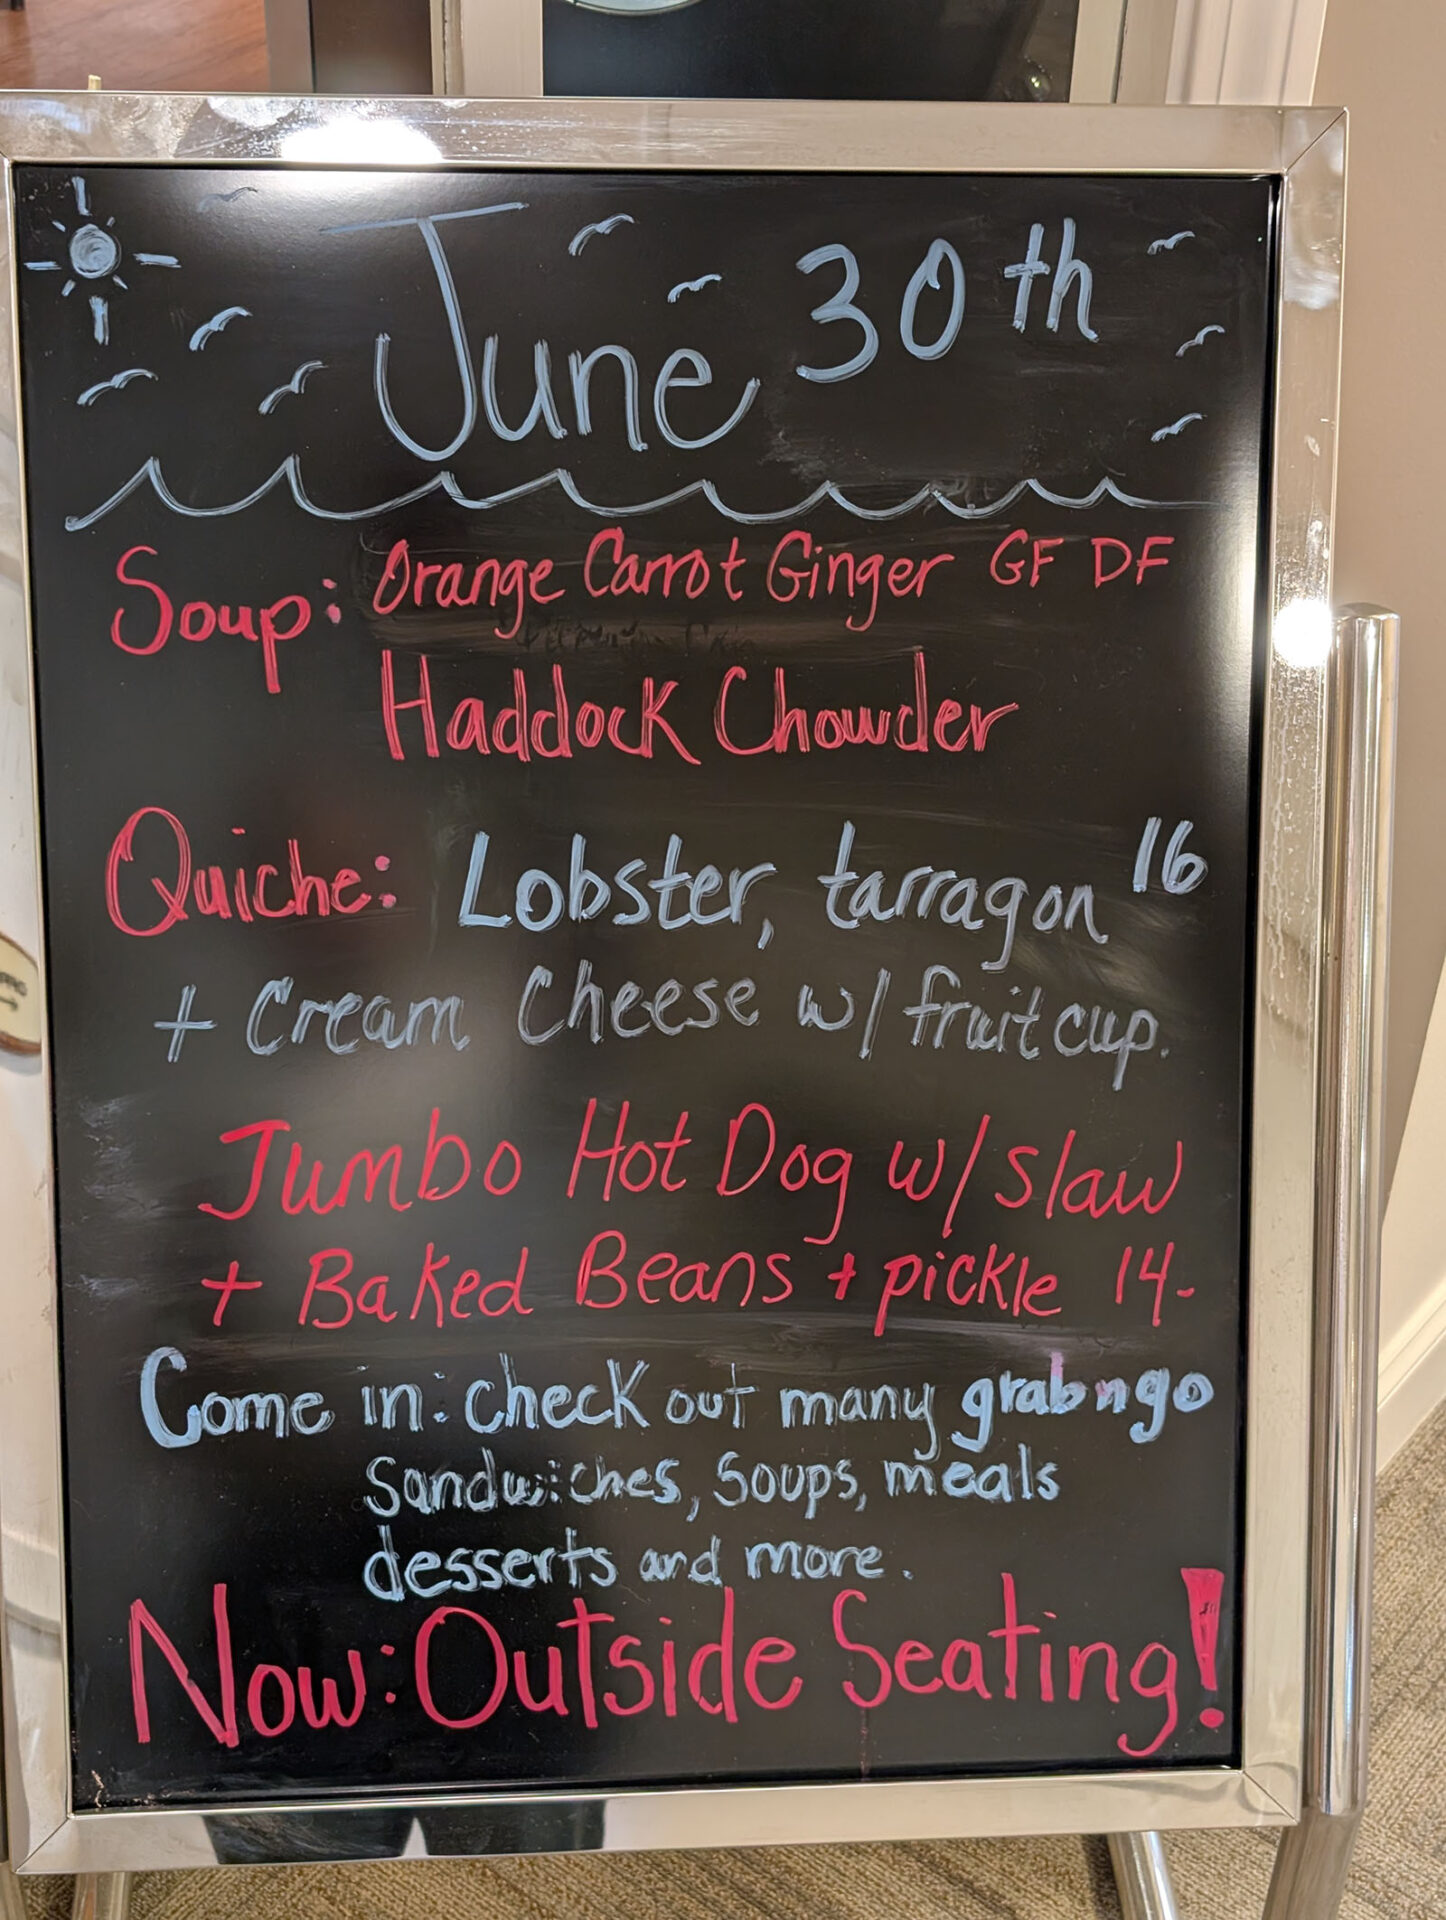 June 30th
Soup: Orange Carrot Ginger GF DF
Haddock Chowder
Quiche: Lobster, tarragon 16
+ Cream Cheese w/ fruit cup.
Jumbo Hot Dog w/ slaw
+ Baked Beans + pickle 14-
Come in: check out many grab n go
Sandwiches, Soups, meals
desserts and more.
Now: Outside Seating!